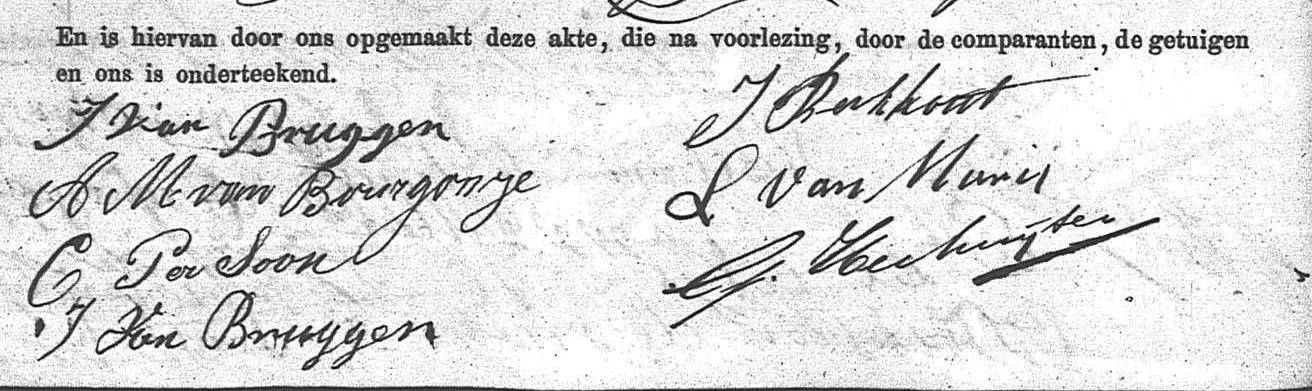 En is hiervan door ons opgemaakt deze akte, die na voorlezing, door de comparanten, de getuigen
en ons is onderteekend.
J Van Bruggen
A M van Bourgonje
C Per Soon
J Van Bruggen
J Berkhout
L van Muris
G.